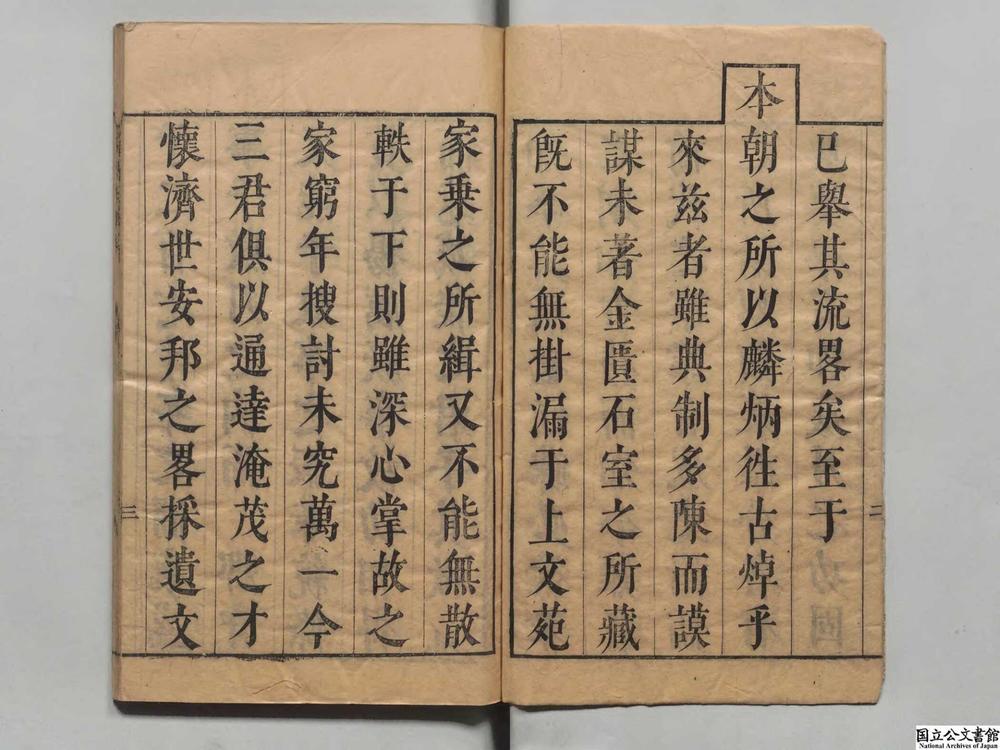 已舉其流畧矣至于
本朝之所以麟炳徃古焯乎
來兹者雖典制多陳而謨
謀未著金匱石室之所藏
旣不能無掛漏于上文苑
二
家乗之所緝又不能無散
軼于下則雖深心掌故之
家窮年搜討未究萬一今
三君俱以通達淹茂之才
懷濟世安邦之畧採遺文
三
国立公文書館
National Archives of Japan